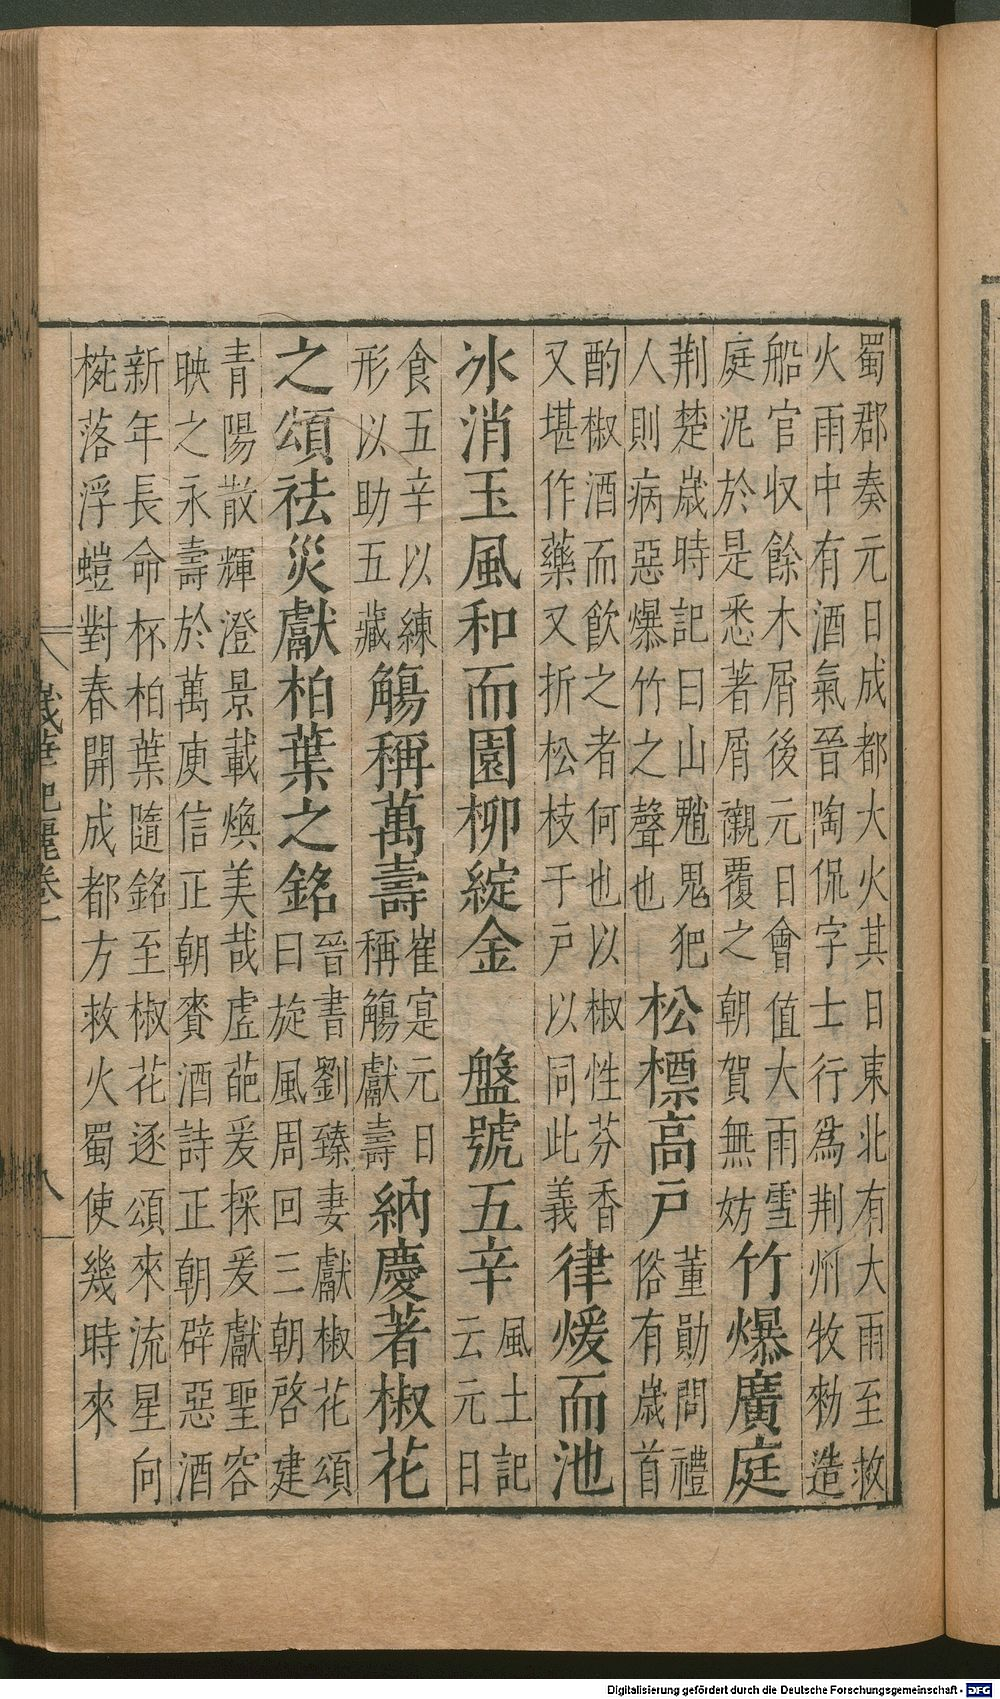 蜀郡奏元日成都大火其日東北有大雨至救
火雨中有酒氣晉陶侃字士行爲荆州牧勑造
船官収餘木屑後元日會值大雨雪
庭泥於是悉著屑襯覆之朝賀無妨
竹爆廣庭
荆楚歲時記曰山魈鬼犯
人則病惡爆竹之聲也
松標高戸
董勛問禮
俗有歲首
酌椒酒而飲之者何也以椒性芬香
又堪作藥又折松枝于戸以同此義
律煖而池
氷消玉風和而園柳綻金 盤號五辛
風土記
云元日
食五辛以練
形以助五藏
觴稱萬壽
崔寔元日
稱觴獻壽
納慶著椒花
之頌祛災獻柏葉之銘
晉書劉臻妻獻椒花頌
曰旋風周回三朝啓建
青陽散輝澄景載煥美哉虗葩爰採爰獻聖容
映之永壽於萬庾信正朝賚酒詩正朝辟惡酒
新年長命杯柏葉隨銘至椒花逐頌來流星向
椀落浮螘對春開成都方救火蜀使幾時來
歲華紀麗卷一
八
Digitalisierung gefördert durch die Deutsche Forschungsgemeinschaft - DFG